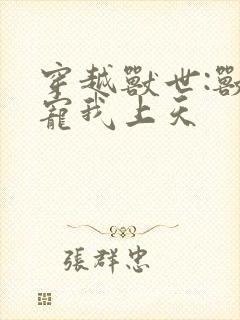 穿越獸世:獸
寵我上天
張群忠